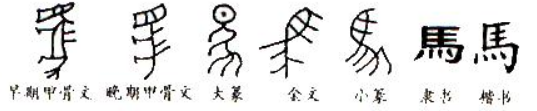 馬 馬
早期甲骨文 晚期甲骨文 大篆 金文 小篆 隶书 楷书